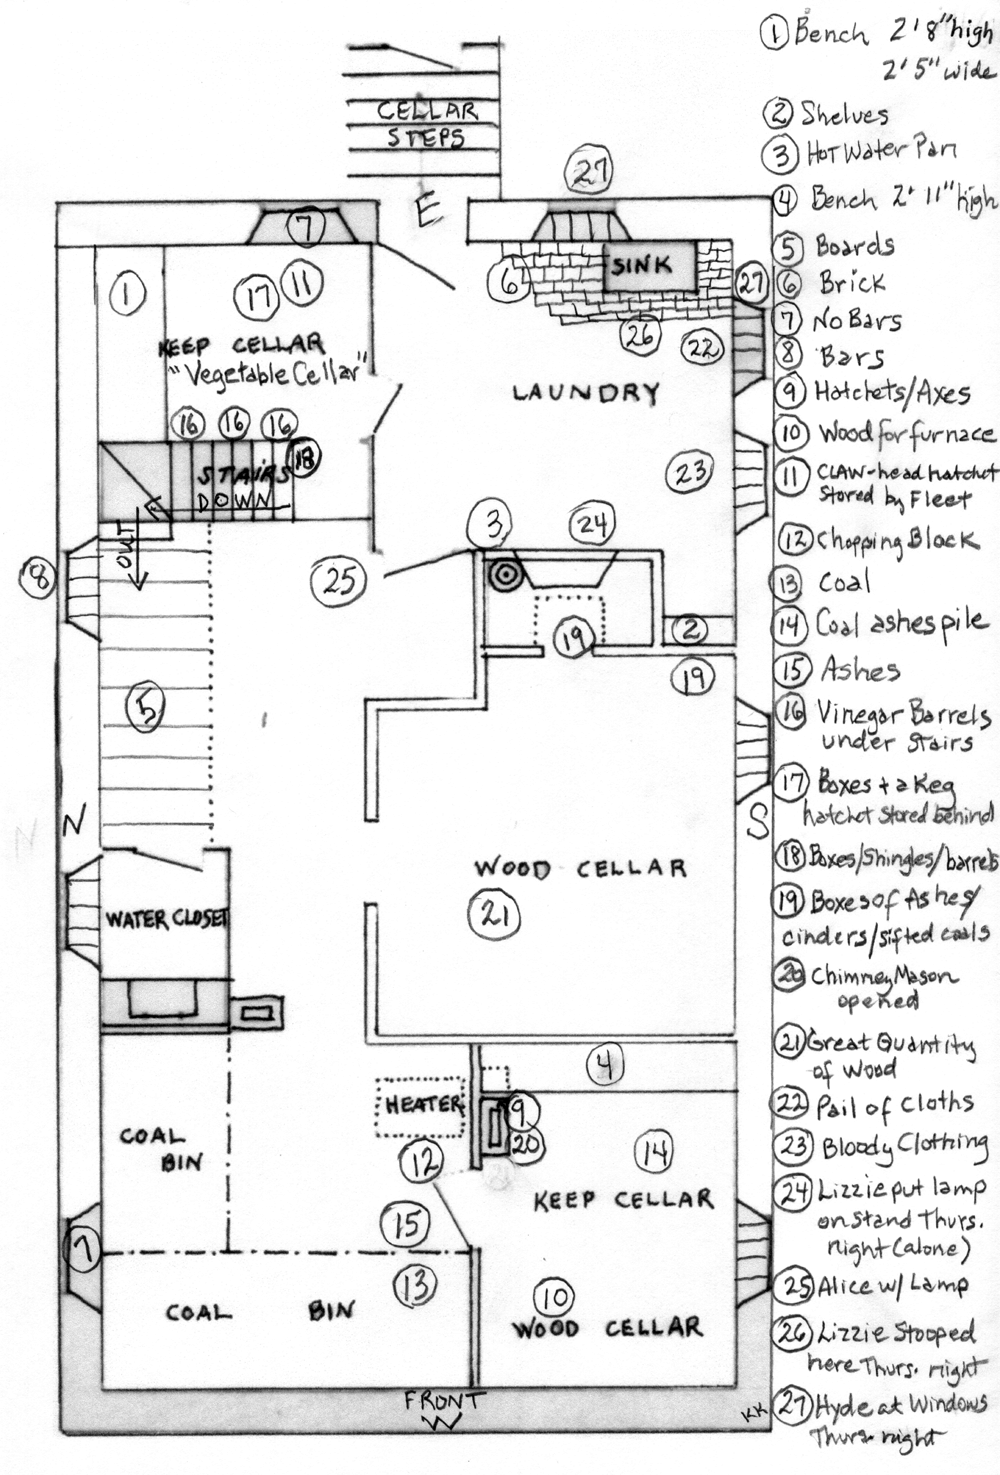 CELLAR
STEPS
E
27
7
1
17
11
KEEP CELLAR
"Vegetable Cellar"
16
16
16
18
STAIRS
DOWN
OUT
6
SINK
27
26
22
LAUNDRY
23
3
24
8
25
19
2
19
5
N
N
S
WATER CLOSET
WOOD CELLAR
21
4
HEATER
9
20
12
14
COAL
BIN
KEEP CELLAR
15
7
13
10
COAL BIN
WOOD CELLAR
FRONT
W
KK
1 Bench 2' 8" high
2' 5" wide
2 Shelves
3 Hot Water Pan
4 Bench 2' 11" high
5 Boards
6 Brick
7 No Bars
8 Bars
9 Hatchets/Axes
10 Wood for furnace
11 CLAW-head hatchet
stored by Fleet
12 Chopping Block
13 Coal
14 Coal ashes pile
15 Ashes
16 Vinegar Barrels
under stairs
17 Boxes + a Keg
hatchet stored behind
18 Boxes/Shingles/barrels
19 Boxes of Ashes/
cinders/sifted coals
20 Chimney Mason
opened
21 Great Quantity
of Wood
22 Pail of Cloths
23 Bloody Clothing
24 Lizzie put lamp
on stand Thurs.
night (alone)
25 Alice w/ Lamp
26 Lizzie Stooped
here Thurs. night
27 Hyde at Windows
Thurs. night